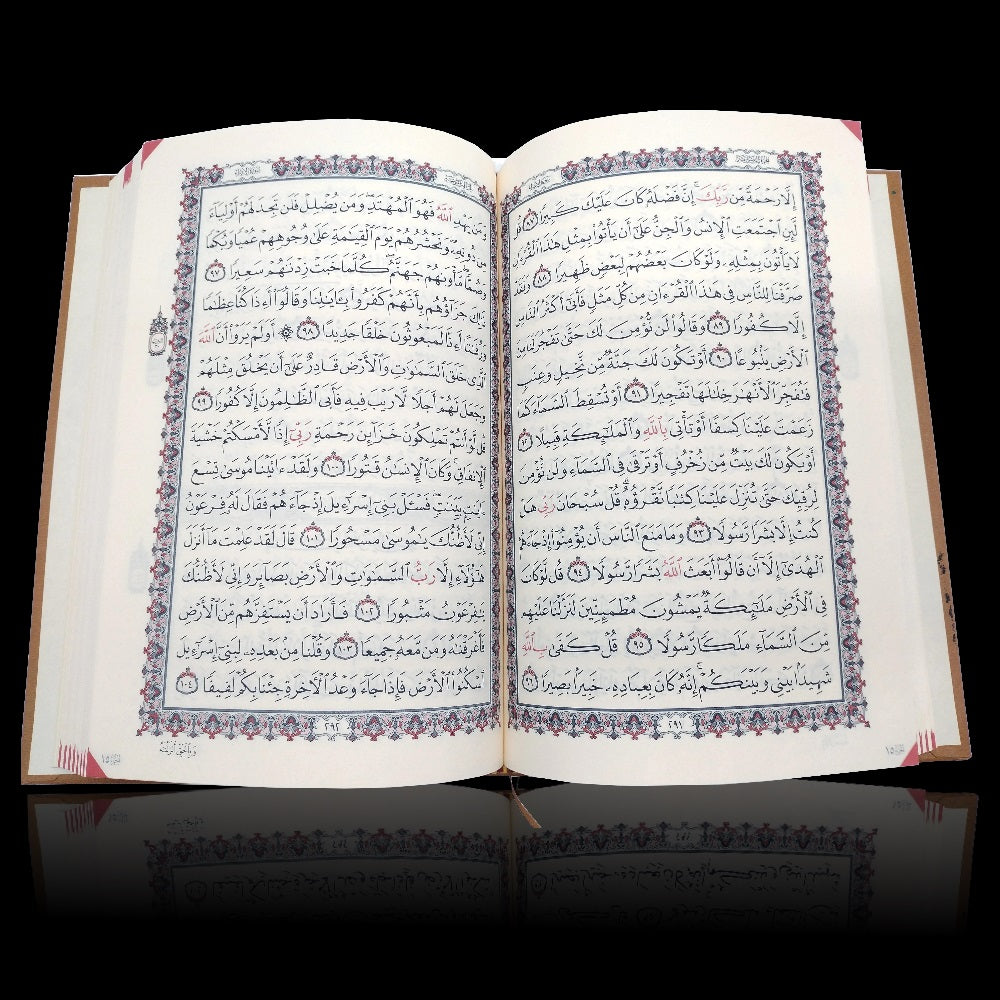 إِلَّا رَحْمَةً مِّن رَّبِّكَ ۚ إِنَّ فَضْلَهُۥ كَانَ عَلَيْكَ كَبِيرًا ٨٧ قُل
لَّئِنِ ٱجْتَمَعَتِ ٱلْإِنسُ وَٱلْجِنُّ عَلَىٰٓ أَن يَأْتُوا۟ بِمِثْلِ هَٰذَا ٱلْقُرْءَانِ
لَا يَأْتُونَ بِمِثْلِهِۦ وَلَوْ كَانَ بَعْضُهُمْ لِبَعْضٍ ظَهِيرًا ٨٨ وَلَقَدْ
صَرَّفْنَا لِلنَّاسِ فِى هَٰذَا ٱلْقُرْءَانِ مِن كُلِّ مَثَلٍ فَأَبَىٰٓ أَكْثَرُ ٱلنَّاسِ
إِلَّا كُفُورًا ٨٩ وَقَالُوا۟ لَن نُّؤْمِنَ لَكَ حَتَّىٰ تَفْجُرَ لَنَا مِنَ
ٱلْأَرْضِ يَنۢبُوعًا ٩٠ أَوْ تَكُونَ لَكَ جَنَّةٌ مِّن نَّخِيلٍ وَعِنَبٍ
فَتُفَجِّرَ ٱلْأَنْهَٰرَ خِلَٰلَهَا تَفْجِيرًا ٩١ أَوْ تُسْقِطَ ٱلسَّمَآءَ كَمَا
زَعَمْتَ عَلَيْنَا كِسَفًا أَوْ تَأْتِىَ بِٱللَّهِ وَٱلْمَلَٰٓئِكَةِ قَبِيلًا ٩٢
أَوْ يَكُونَ لَكَ بَيْتٌ مِّن زُخْرُفٍ أَوْ تَرْقَىٰ فِى ٱلسَّمَآءِ وَلَن نُّؤْمِنَ
لِرُقِيِّكَ حَتَّىٰ تُنَزِّلَ عَلَيْنَا كِتَٰبًا نَّقْرَؤُهُۥ ۗ قُلْ سُبْحَانَ رَبِّى هَلْ
كُنتُ إِلَّا بَشَرًا رَّسُولًا ٩٣ وَمَا مَنَعَ ٱلنَّاسَ أَن يُؤْمِنُوٓا۟ إِذْ جَآءَهُمُ
ٱلْهُدَىٰٓ إِلَّآ أَن قَالُوٓا۟ أَبَعَثَ ٱللَّهُ بَشَرًا رَّسُولًا ٩٤ قُل لَّوْ كَانَ
فِى ٱلْأَرْضِ مَلَٰٓئِكَةٌ يَمْشُونَ مُطْمَئِنِّينَ لَنَزَّلْنَا عَلَيْهِم
مِّنَ ٱلسَّمَآءِ مَلَكًا رَّسُولًا ٩٥ قُلْ كَفَىٰ بِٱللَّهِ
شَهِيدًۢا بَيْنِى وَبَيْنَكُمْ ۚ إِنَّهُۥ كَانَ بِعِبَادِهِۦ خَبِيرًۢا بَصِيرًا ٩٦
٢٩١
وَمَن يَهْدِ ٱللَّهُ فَهُوَ ٱلْمُهْتَدِ ۖ وَمَن يُضْلِلْ فَلَن تَجِدَ لَهُمْ أَوْلِيَآءَ
مِن دُونِهِۦ ۖ وَنَحْشُرُهُمْ يَوْمَ ٱلْقِيَٰمَةِ عَلَىٰ وُجُوهِهِمْ عُمْيًا وَبُكْمًا
وَصُمًّا ۖ مَّأْوَىٰهُمْ جَهَنَّمُ ۖ كُلَّمَا خَبَتْ زِدْنَٰهُمْ سَعِيرًا ٩٧
ذَٰلِكَ جَزَآؤُهُم بِأَنَّهُمْ كَفَرُوا۟ بِـَٔايَٰتِنَا وَقَالُوٓا۟ أَءِذَا كُنَّا عِظَٰمًا
وَرُفَٰتًا أَءِنَّا لَمَبْعُوثُونَ خَلْقًا جَدِيدًا ٩٨ ۞ أَوَلَمْ يَرَوْا۟ أَنَّ ٱللَّهَ
ٱلَّذِى خَلَقَ ٱلسَّمَٰوَٰتِ وَٱلْأَرْضَ قَادِرٌ عَلَىٰٓ أَن يَخْلُقَ مِثْلَهُمْ
وَجَعَلَ لَهُمْ أَجَلًا لَّا رَيْبَ فِيهِ فَأَبَى ٱلظَّٰلِمُونَ إِلَّا كُفُورًا ٩٩
قُل لَّوْ أَنتُمْ تَمْلِكُونَ خَزَآئِنَ رَحْمَةِ رَبِّىٓ إِذًا لَّأَمْسَكْتُمْ خَشْيَةَ
ٱلْإِنفَاقِ ۚ وَكَانَ ٱلْإِنسَٰنُ قَتُورًا ١٠٠ وَلَقَدْ ءَاتَيْنَا مُوسَىٰ تِسْعَ
ءَايَٰتٍۭ بَيِّنَٰتٍ ۖ فَسْـَٔلْ بَنِىٓ إِسْرَٰٓءِيلَ إِذْ جَآءَهُمْ فَقَالَ لَهُۥ فِرْعَوْنُ
إِنِّى لَأَظُنُّكَ يَٰمُوسَىٰ مَسْحُورًا ١٠١ قَالَ لَقَدْ عَلِمْتَ مَآ أَنزَلَ
هَٰٓؤُلَآءِ إِلَّا رَبُّ ٱلسَّمَٰوَٰتِ وَٱلْأَرْضِ بَصَآئِرَ وَإِنِّى لَأَظُنُّكَ
يَٰفِرْعَوْنُ مَثْبُورًا ١٠٢ فَأَرَادَ أَن يَسْتَفِزَّهُم مِّنَ ٱلْأَرْضِ
فَأَغْرَقْنَٰهُ وَمَن مَّعَهُۥ جَمِيعًا ١٠٣ وَقُلْنَا مِنۢ بَعْدِهِۦ لِبَنِىٓ إِسْرَٰٓءِيلَ
ٱسْكُنُوا۟ ٱلْأَرْضَ فَإِذَا جَآءَ وَعْدُ ٱلْءَاخِرَةِ جِئْنَا بِكُمْ لَفِيفًا ١٠٤
٢٩٢